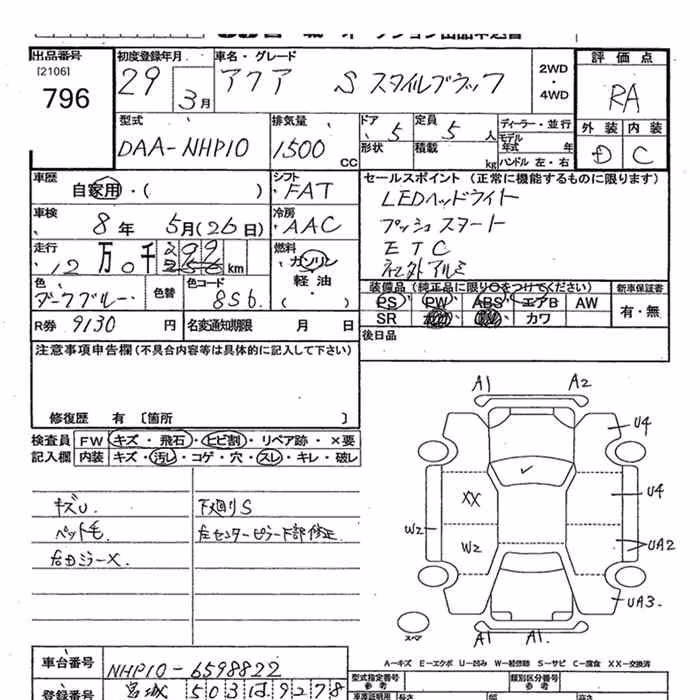 出品番号 [2106] 796
初度登録年月 29 3月
車名・グレード アクア S スタイルブラック
2WD・4WD
評価点 RA
外装 内装
D C
型式 DAA-NHP10
排気量 1500 CC
ドア 5
形状
定員 5 人
積載 kg
ディーラー・並行
モデル年式 年
ハンドル 左・右
車歴 自家用・( )
シフト FAT
セールスポイント (正常に機能するものに限ります)
LEDヘッドライト
プッシュスタート
ETC
社外アルミ
車検 8年 5月(26日)
冷房 AAC
走行 12万0千299 km
燃料 ガソリン・軽油・( )
色 ダークブルー
色替
色コード 8S6
装備品 (純正品に限り○をつけてください)
新車保証書 有・無
PS PW ABS エアB AW
SR カワ
R券 9130 円
名変通知期限 月 日
後日品
注意事項申告欄 (不具合内容等は具体的に記入して下さい)
修復歴 有 〔箇所 〕
検査員記入欄
FW キズ・飛石・ヒビ割・リペア跡・×要
内装 キズ・汚レ・コゲ・穴・スレ・キレ・破レ
キズU.
ペット毛
右DミラーX.
下廻りS
左センターピラー下部修正
A1 A2
U4
XX U4
W2 W2 UA2
UA3.
スペア
A1 A1.
A-キズ E-エクボ U-凹み W-補修跡 S-サビ C-腐食 XX-交換済
車台番号 NHP10-6598822
登録番号 宮城 503 は 9278
型式指定番号 参考
類別区分番号 参考
長さ 幅 高さ